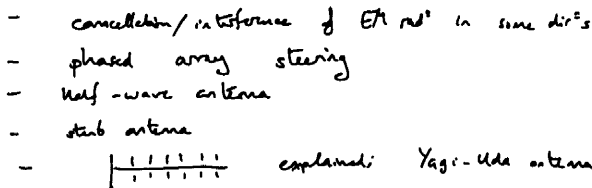 - cancellation/interference of EM rad⁰ in some dir⁰s
- phased array steering
- half-wave antenna
- stub antenna
- explained: Yagi-Uda antenna